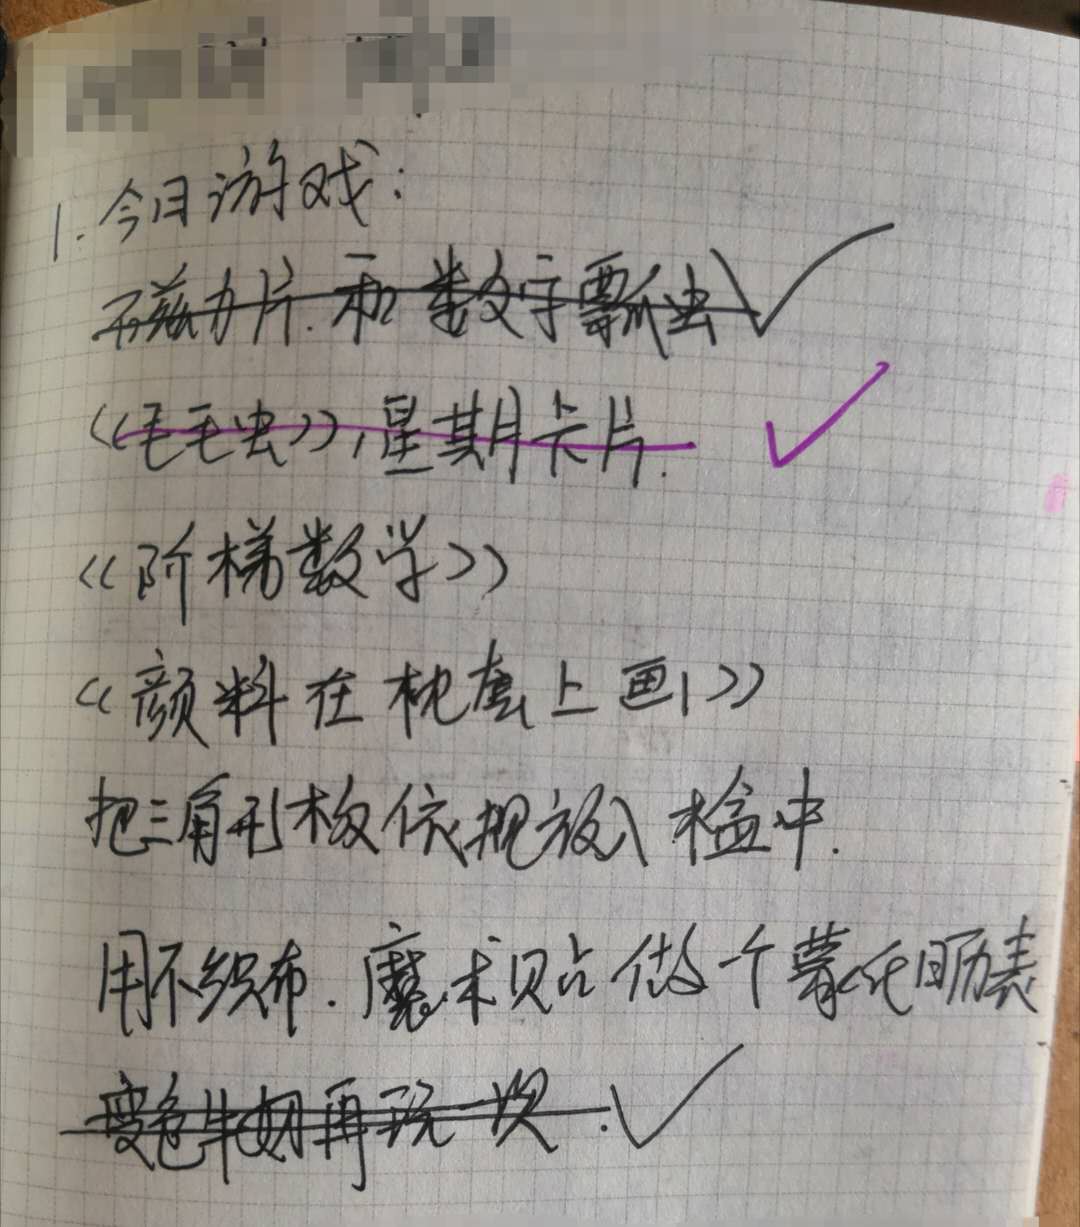 1.今日游戏:
磁力片.和 数字瓢虫
《毛毛虫》,星期卡片.
《阶梯数学》
《颜料在枕套上画》
把三角形板依规放入盒中.
用不织布.魔术贴做一个蒙氏日历表
变色牛奶再玩一次.